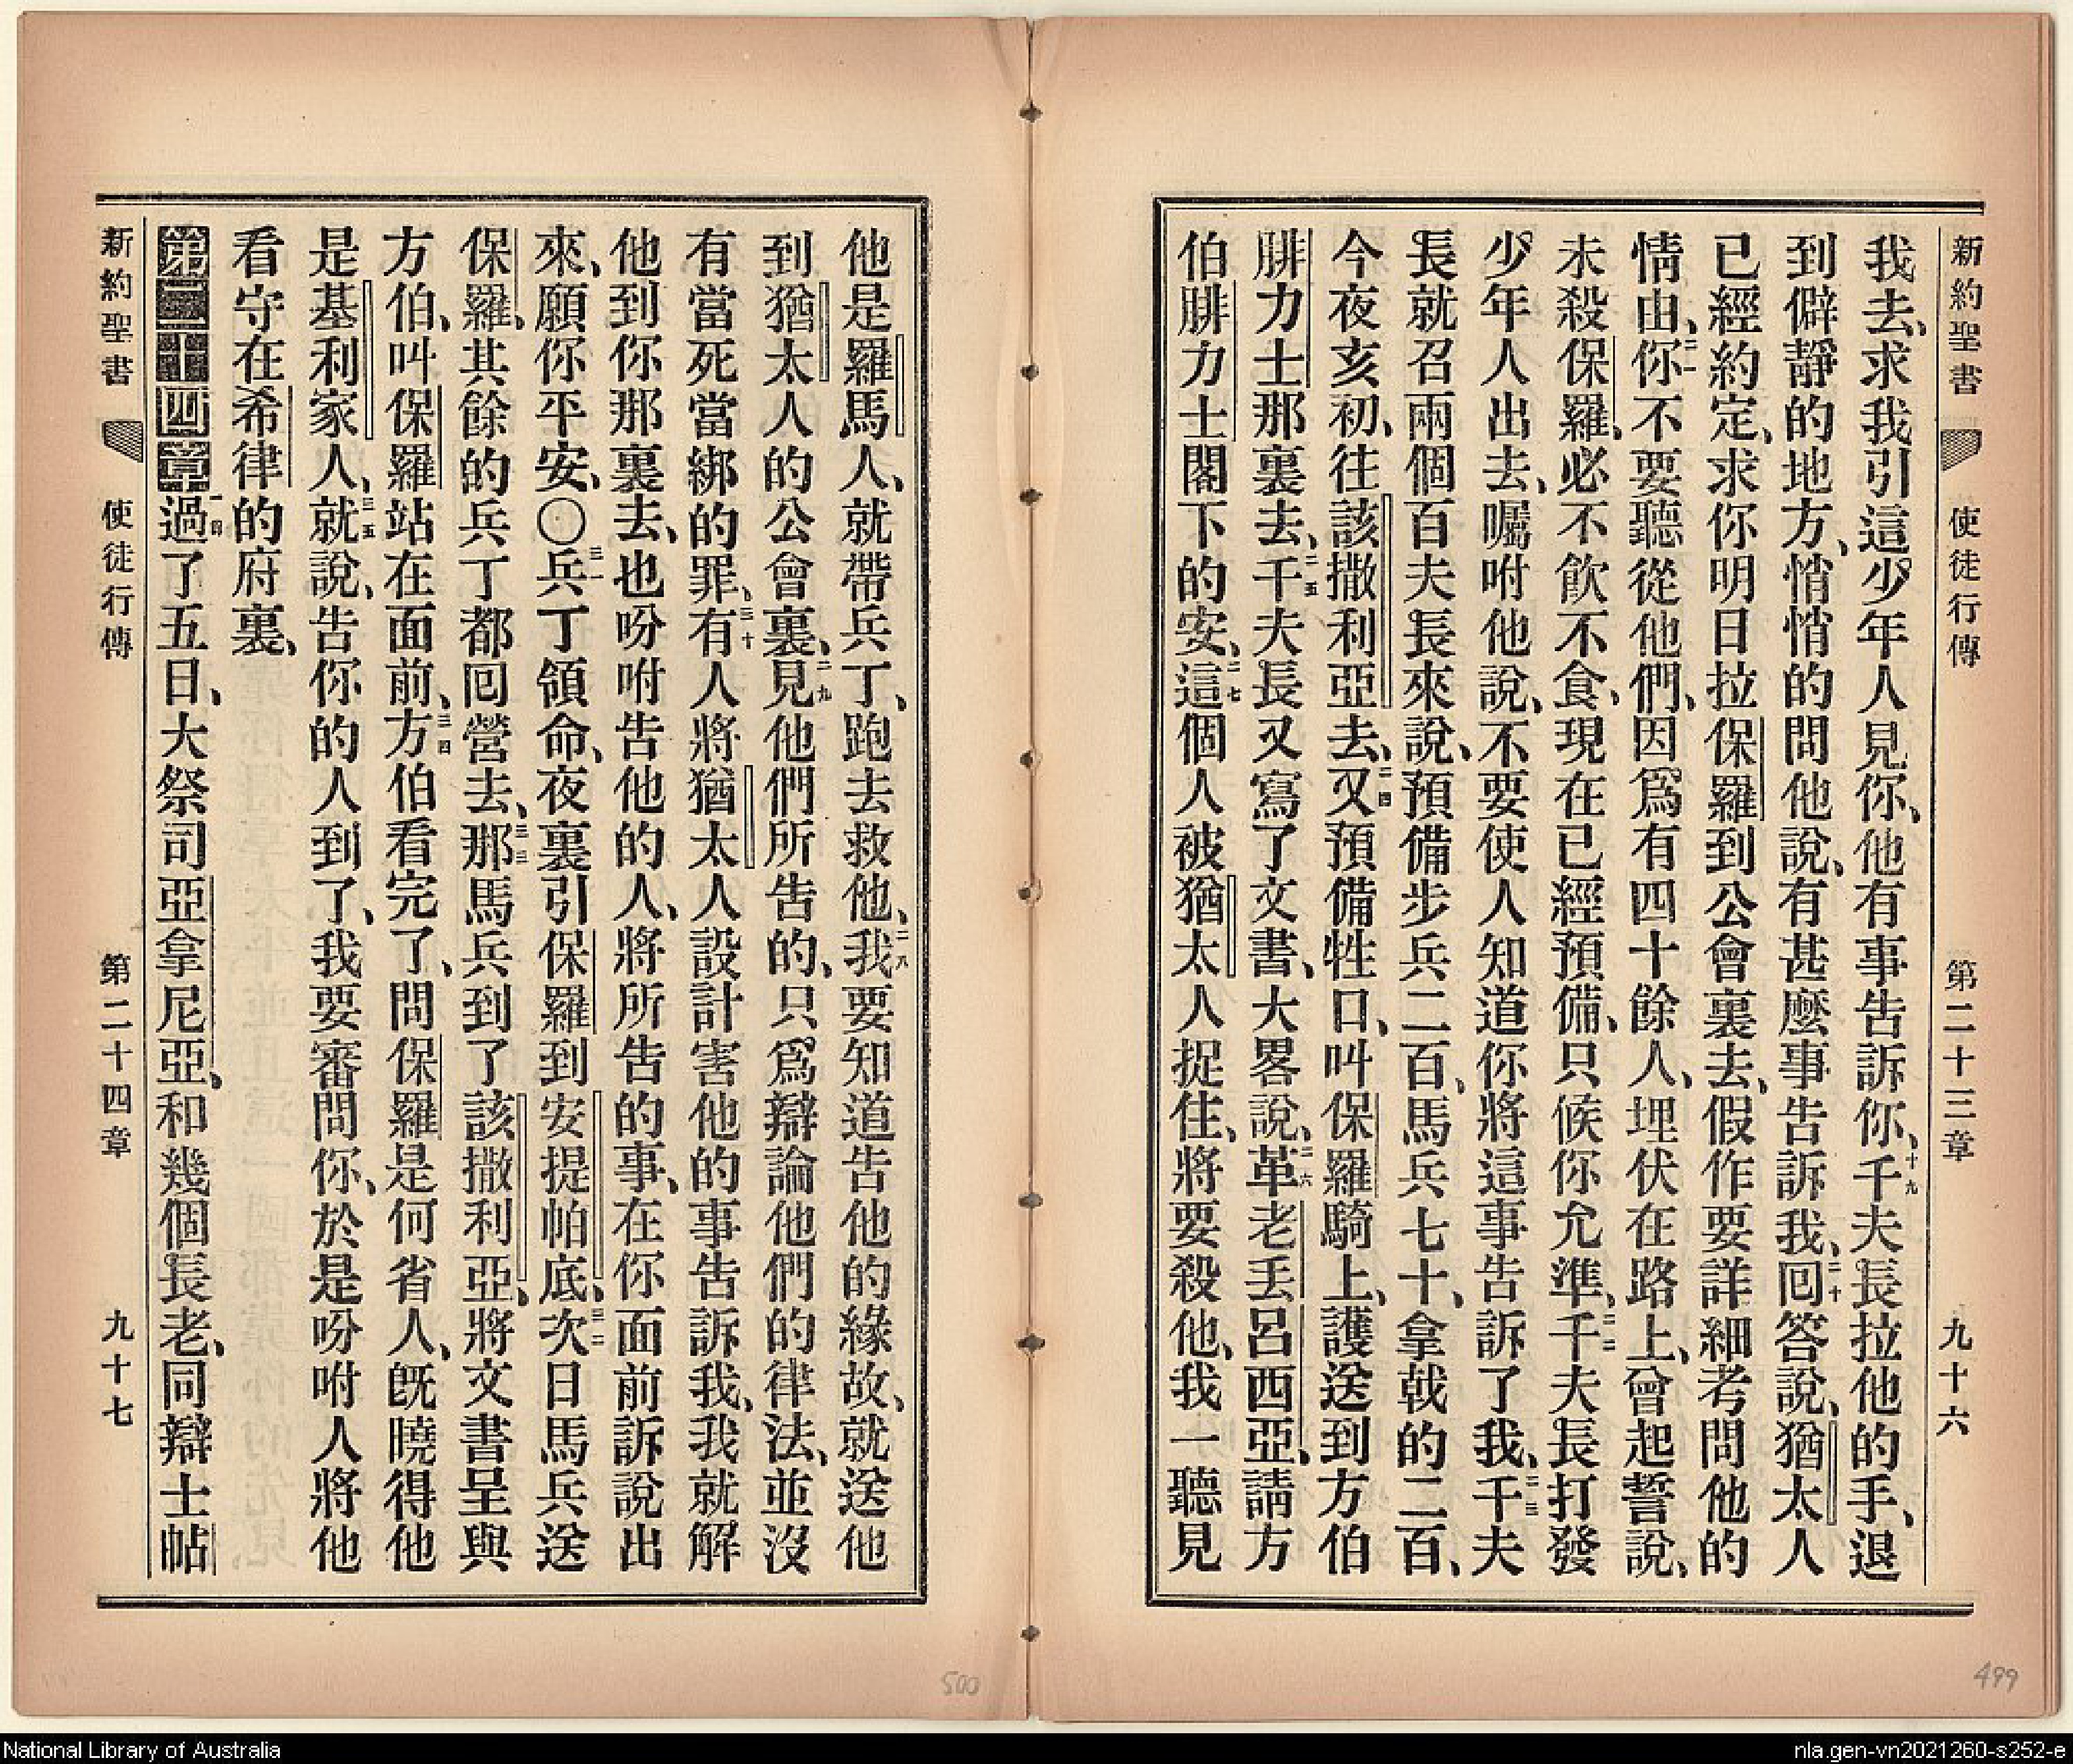 新約聖書 使徒行傳 第二十三章 九十六
我去、求我引這少年人見你、他有事告訴你、十九千夫長拉他的手、退
到僻靜的地方、悄悄的問他說、有甚麼事告訴我、二十囘答說、猶太人
已經約定、求你明日拉保羅到公會裏去、假作要詳細考問他的
情由、二一你不要聽從他們、因爲有四十餘人、埋伏在路上、曾起誓說、
未殺保羅、必不飲不食、現在已經預備、只候你允準、二二千夫長打發
少年人出去、囑咐他說、不要使人知道你將這事告訴了我、二三千夫
長就召兩個百夫長來說、預備步兵二百、馬兵七十、拿戟的二百、
今夜亥初、往該撒利亞去、二四又預備牲口、叫保羅騎上、護送到方伯
腓力士那裏去、二五千夫長又寫了文書、大畧說、二六革老丟呂西亞、請方
伯腓力士閣下的安、二七這個人被猶太人捉住、將要殺他、我一聽見
他是羅馬人、就帶兵丁、跑去救他、二八我要知道告他的緣故、就送他
到猶太人的公會裏、二九見他們所告的、只爲辯論他們的律法、並沒
有當死當綁的罪、三十有人將猶太人設計害他的事告訴我、我就解
他到你那裏去、也吩咐告他的人、將所告的事、在你面前訴說出
來、願你平安、〇三一兵丁領命、夜裏引保羅到安提帕底、三二次日馬兵送
保羅、其餘的兵丁都囘營去、三三那馬兵到了該撒利亞、將文書呈與
方伯、叫保羅站在面前、三四方伯看完了、問保羅是何省人、旣曉得他
是基利家人、三五就說、告你的人到了、我要審問你、於是吩咐人將他
看守在希律的府裏、
第二十四章一過了五日、大祭司亞拿尼亞、和幾個長老、同辯士帖
新約聖書 使徒行傳 第二十四章 九十七
500
499
National Library of Australia
nla.gen-vn2021260-s252-e